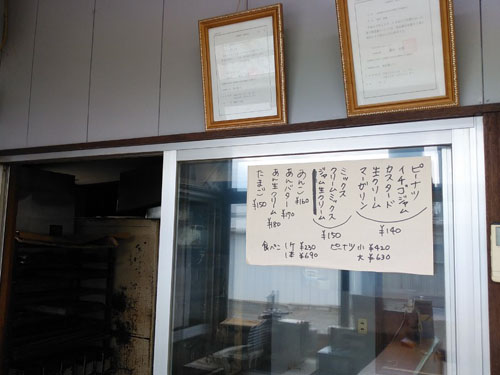 ピーナツ
イチゴジャム
カスタード
生クリーム
マーガリン
¥140
ミックス
クリームミックス
ジャム生クリーム
¥150
あんこ ¥160
あんバター ¥170
あん生クリーム ¥180
たまご ¥150
食パン 1ケ ¥230
1本 ¥690
ピーナツ 小 ¥420
大 ¥630